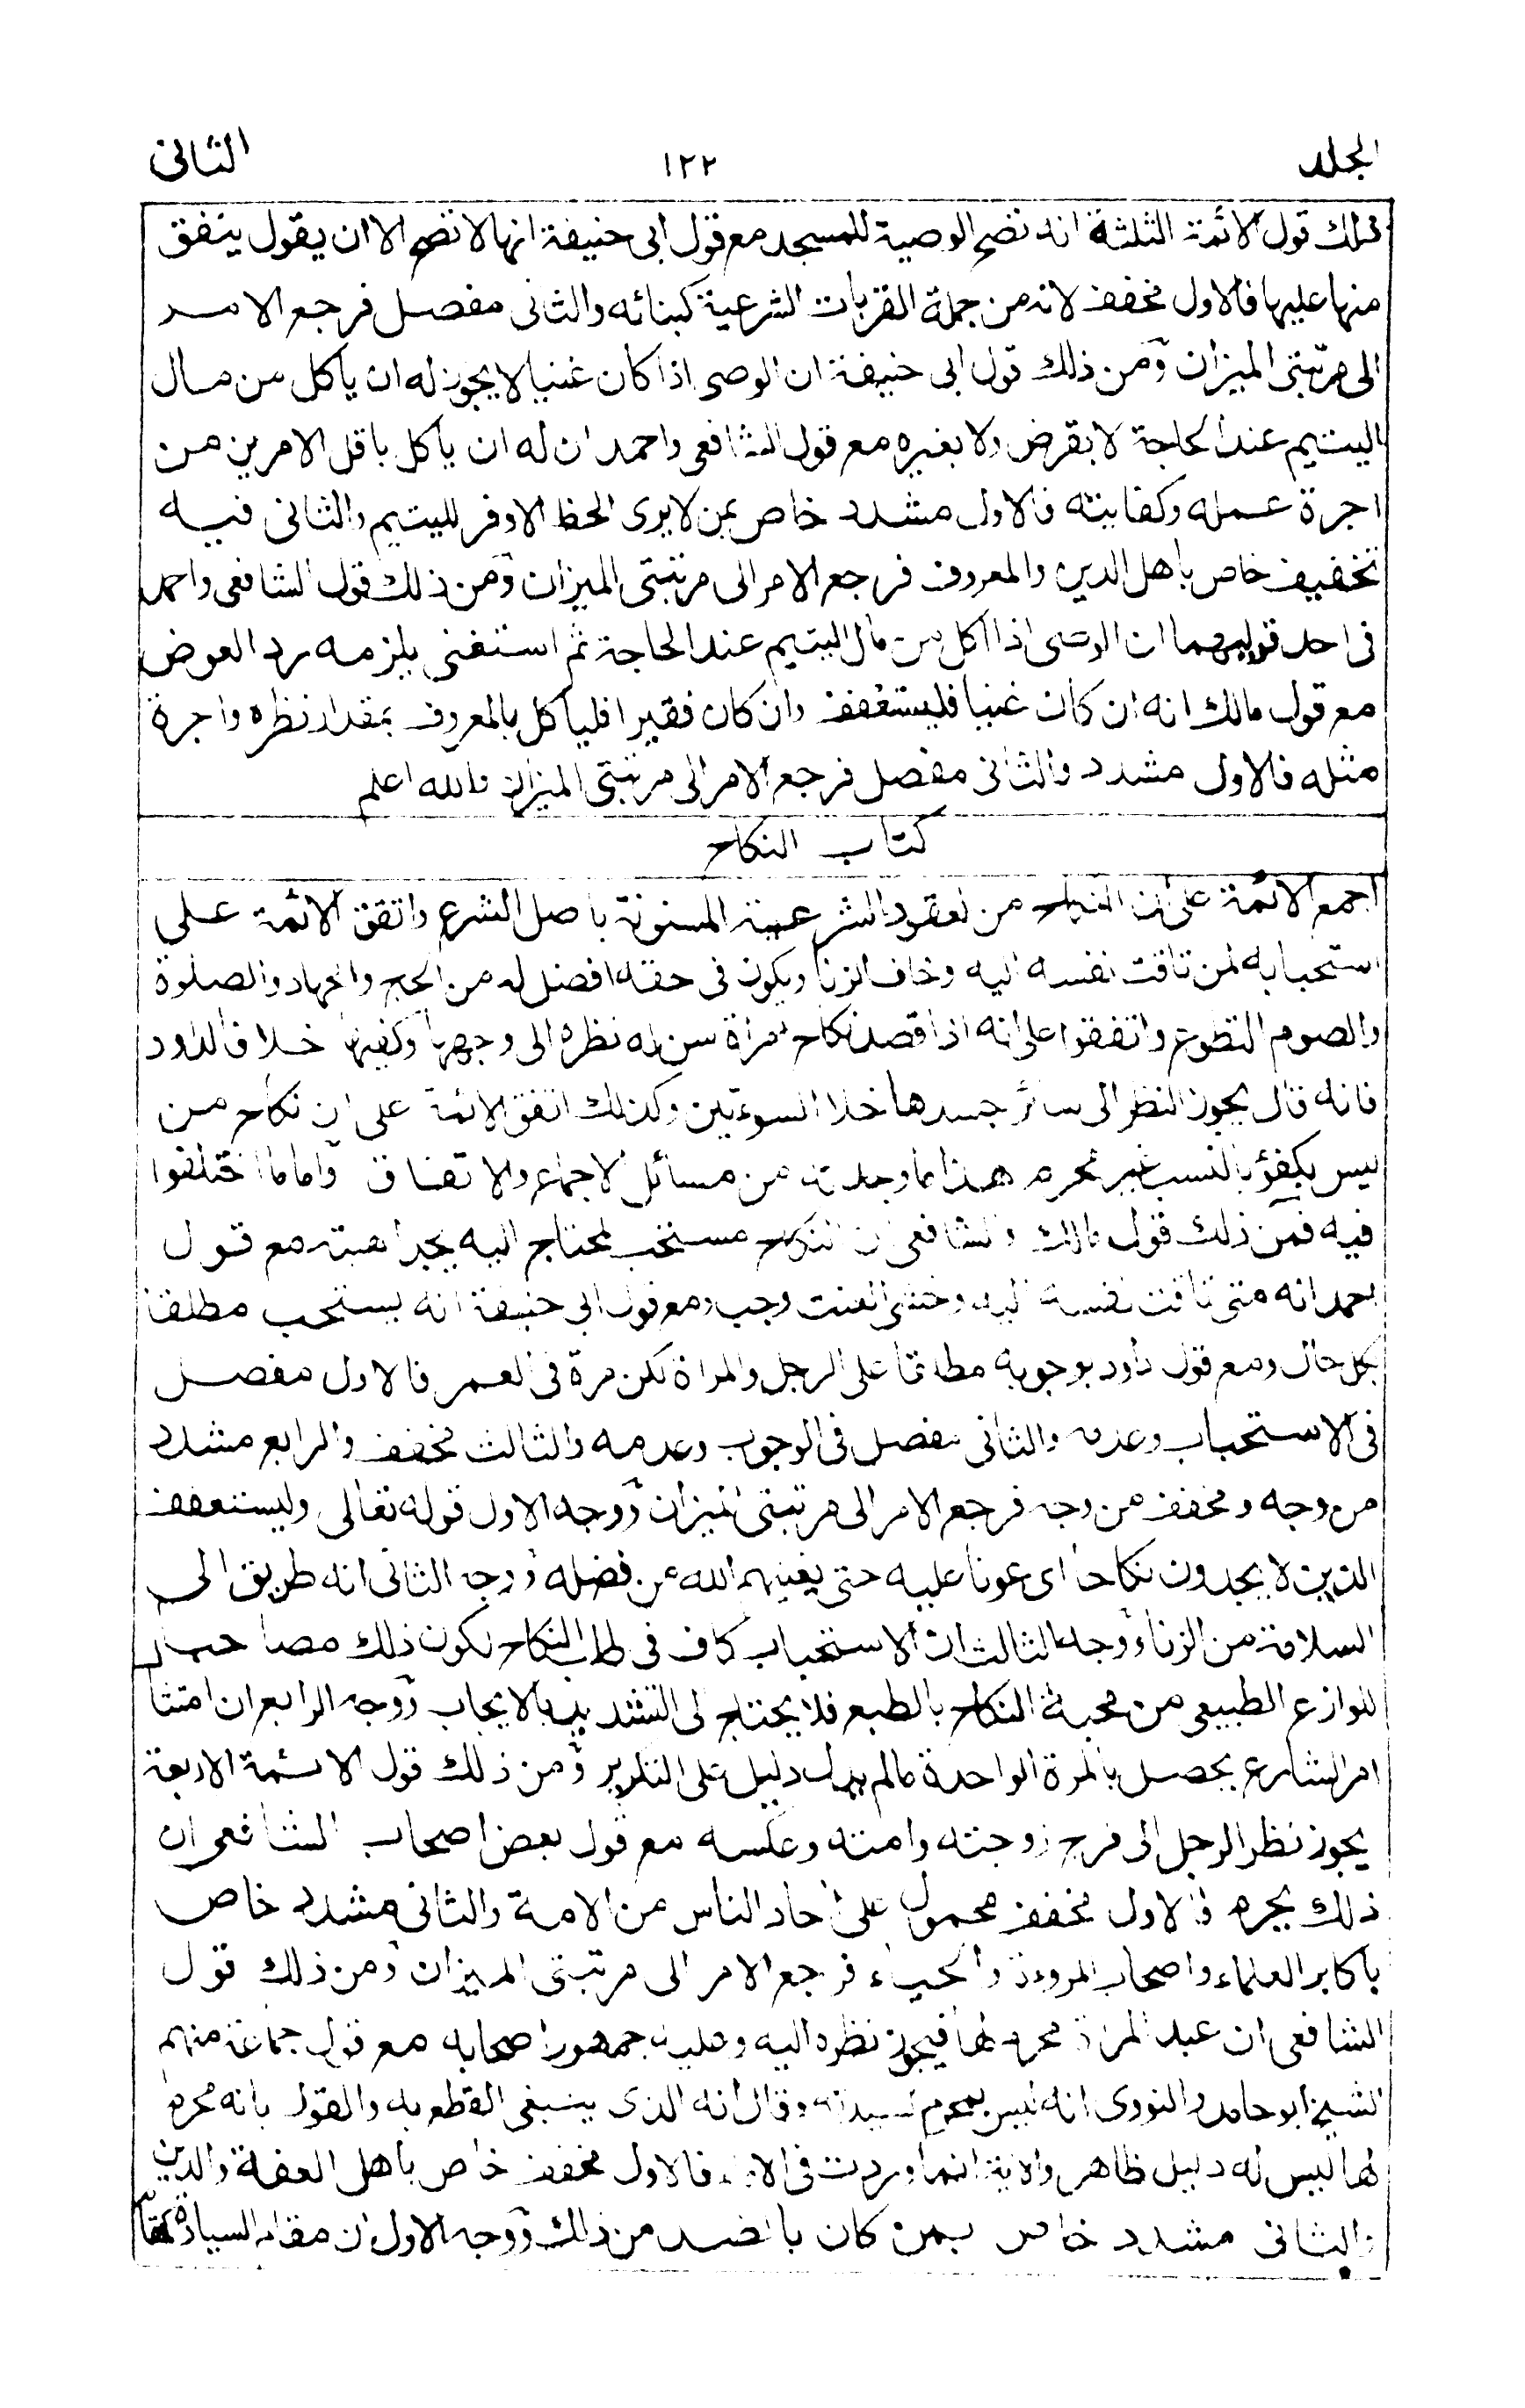 المجلد ١٢٢ الثانى
ذلك قول الائمة الثلثة انه تصح الوصية للمسجد مع قول ابى حنيفة انها لا تصح الا ان يقول ينفق
منها عليها فالاول مخفف لانه من جملة القربات الشرعية كبنائه والثانى مفصل فرجع الامر
الى مرتبتى الميزان ومن ذلك قول ابى حنيفة ان الوصى اذا كان غنيا لا يجوز له ان ياكل من مال
اليتيم عند الحاجة لا بقرض ولا بغيره مع قول الشافعى واحمد ان له ان ياكل باقل الامرين من
اجرة عمله وكفايته فالاول مشدد خاص بمن لا يرى الحظ الاوفر لليتيم والثانى فيه
تخفيف خاص باهل الدين والمعروف فرجع الامر الى مرتبتى الميزان ومن ذلك قول الشافعى واحمد
فى احد قوليهما ان الوصى اذا اكل من مال اليتيم عند الحاجة ثم استغنى يلزمه رد العوض
مع قول مالك انه ان كان غنيا فليستعفف وان كان فقيرا فلياكل بالمعروف بمقدار نظره واجرة
مثله فالاول مشدد والثانى مفصل فرجع الامر الى مرتبتى الميزان والله اعلم
كتاب النكاح
اجمع الائمة على ان النكاح من العقود الشرعية المسنونة باصل الشرع واتفق الائمة على
استحبابه لمن تاقت نفسه اليه وخاف الزنا ويكون فى حقه افضل له من الحج والجهاد والصلوة
والصوم التطوع واتفقوا على انه اذا قصد نكاح امراة سن له نظره الى وجهها وكفيها خلافا لداود
فانه قال يجوز النظر الى سائر جسدها خلا السوءتين وكذلك اتفق الائمة على ان نكاح من
ليس بكفؤ بالنسب غير محرم هذا ما وجدته من مسائل الاجماع والاتفاق واما ما اختلفوا
فيه فمن ذلك قول مالك والشافعى ان النكاح مستحب لمحتاج اليه يجد اهبته مع قول
احمد انه متى تاقت نفسه اليه وخشى العنت وجب ومع قول ابى حنيفة انه يستحب مطلقا
بكل حال ومع قول داود بوجوبه مطلقا على الرجل والمراة لكن مرة فى العمر فالاول مفصل
فى الاستحباب وعدمه والثانى مفصل فى الوجوب وعدمه والثالث مخفف والرابع مشدد
من وجه ومخفف من وجه فرجع الامر الى مرتبتى الميزان ووجه الاول قوله تعالى وليستعفف
الذين لا يجدون نكاحا اى عونا عليه حتى يغنيهم الله من فضله ووجه الثانى انه طريق الى
السلامة من الزناء ووجه الثالث ان الاستحباب كاف فى طلب النكاح لكون ذلك مصاحبا
للوازع الطبيعى من محبة النكاح بالطبع فلا يحتاج الى التشديد بالايجاب ووجه الرابع ان امتثا
امر الشارع يحصل بالمرة الواحدة ما لم يدل دليل على التكرير ومن ذلك قول الائمة الاربعة
يجوز نظر الرجل الى فرج زوجته وامته وعكسه مع قول بعض اصحاب الشافعى ان
ذلك يحرم فالاول مخفف محمول على احاد الناس من الامة والثانى مشدد خاص
باكابر العلماء واصحاب المروءة والحياء فرجع الامر الى مرتبتى الميزان ومن ذلك قول
الشافعى ان عبد المراة محرم لها فيجوز نظره اليه وعليه جمهور اصحابه مع قول جماعة منهم
الشيخ ابو حامد والنووى انه ليس بمحرم لسيدته وقال انه الذى ينبغى القطع به والقول بانه محرم
لها ليس له دليل ظاهر والاية انما وردت فى الاماء فالاول مخفف خاص باهل العفة والدين
والثانى مشدد خاص بمن كان بالضد من ذلك ووجه الاول ان مقام السيادة